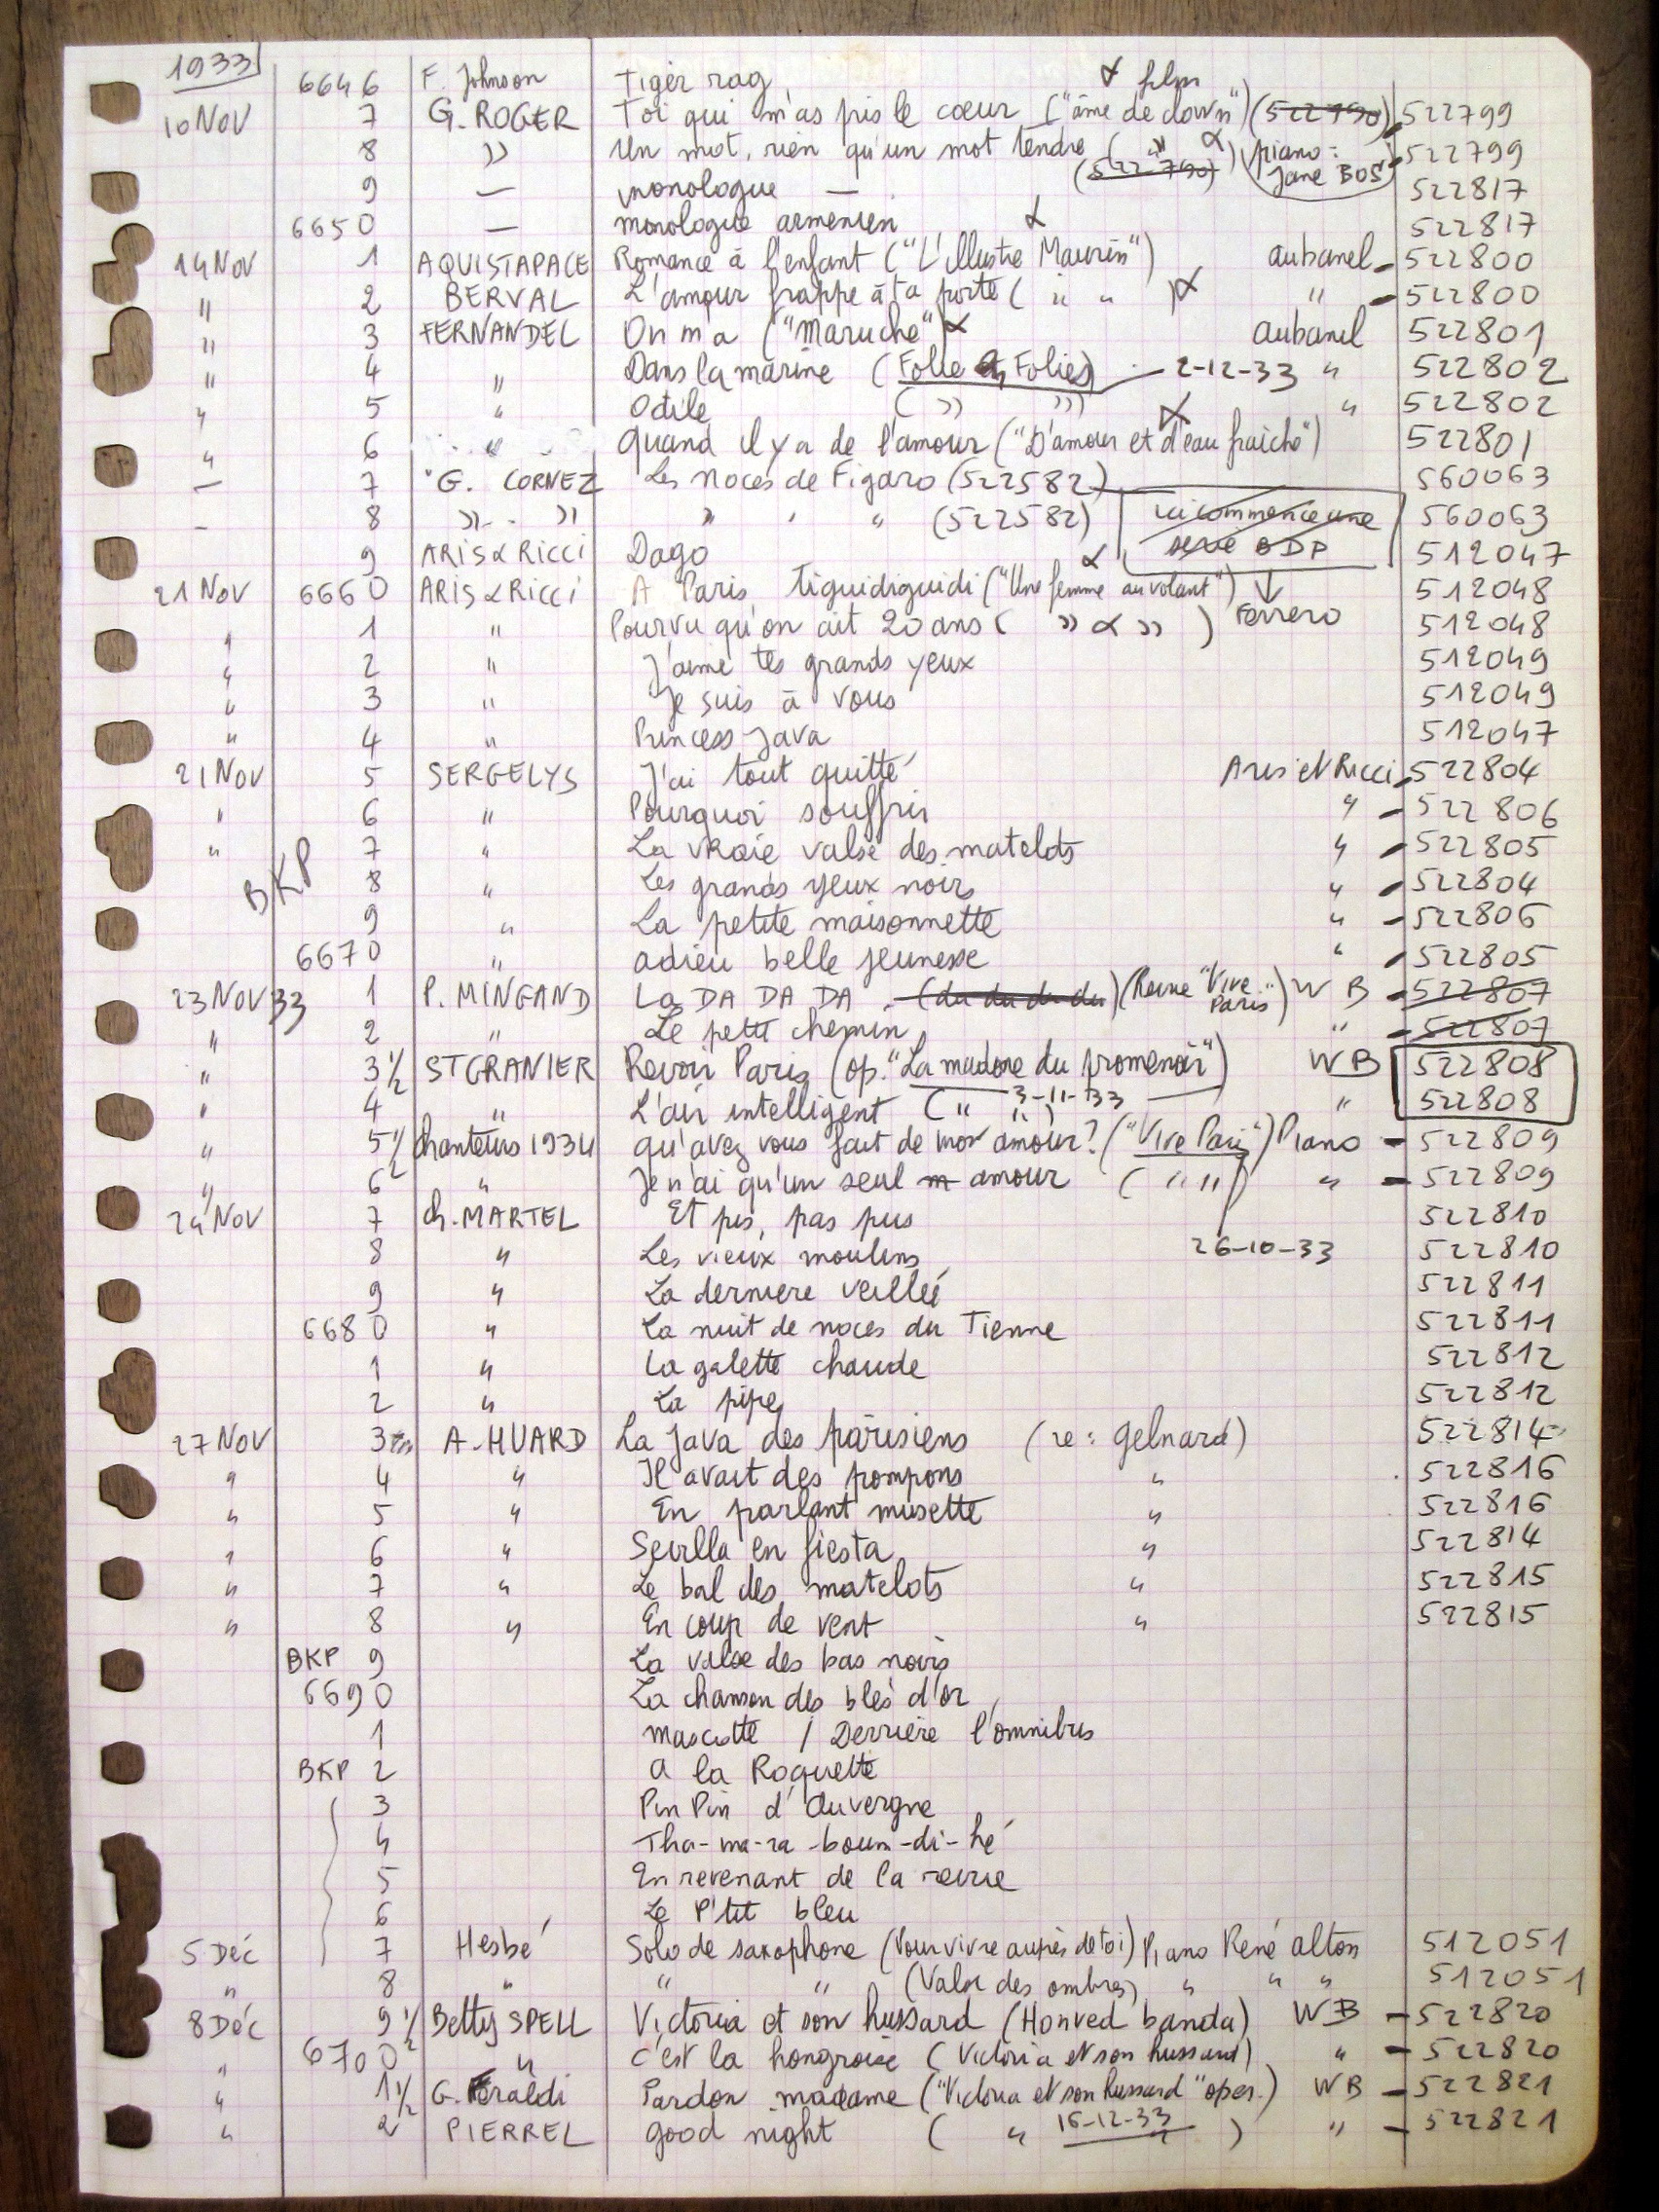 1933 6646 F. Johnson Tiger rag α film
10 NOV 7 G. ROGER Toi qui m'as pris le cœur ("âme de clown") (522790) 522799
8 " Un mot, rien qu'un mot tendre ( " α ) (522790) (piano: Jane BOS) 522799
9 — monologue — 522817
6650 — monologue armenien α 522817
14 NOV 1 AQUISTAPACE Romance à l'enfant ("L'illustre Maurin") aubanel - 522800
" 2 BERVAL L'amour frappe à ta porte ( " " ) α " - 522800
" 3 FERNANDEL On m'a ("Maruche") α aubanel 522801
" 4 " Dans la marine (Folie en Folies) - 2-12-33 " 522802
" 5 " Odile ( " " ) α " 522802
" 6 " Quand il y a de l'amour ("D'amour et d'eau fraîche") 522801
— 7 G. CORNEZ Les noces de Figaro (522582) 560063
- 8 " " " " " (522582) ici commence une serie ODP 560063
9 ARIS & RICCI Dago α 512047
21 NOV 6660 ARIS & RICCI A Paris, tiguidiguidi ("Une femme au volant") ↓ 512048
" 1 " Pourvu qu'on ait 20 ans ( " α " ) Ferrero 512048
" 2 " J'aime tes grands yeux 512049
" 3 " Je suis à vous 512049
" 4 " Princess Java 512047
21 NOV 5 SERGELYS J'ai tout quitté Aris et Ricci - 522804
" 6 " Pourquoi souffrir " - 522806
" 7 " La vraie valse des matelots " - 522805
BKP 8 " Les grands yeux noirs " - 522804
9 " La petite maisonnette " - 522806
6670 " adieu belle jeunesse " - 522805
23 NOV 33 1 P. MINGAND La DA DA DA (du du du du) (Revue "Vive Paris") W B - 522807
" 2 " Le petit chemin " - 522807
" 3 1/2 ST GRANIER Revoir Paris (op. "La madone du promenoir") WB 522808
" 4 " L'air intelligent ( " " ) 3-11-33 " 522808
" 5 1/2 Chanteurs 1934 qu'avez vous fait de mon amour? ("Vive Paris") Piano - 522809
" 6 " Je n'ai qu'un seul m amour ( " " ) " - 522809
24 NOV 7 Ch. MARTEL Et pis, pas pus 522810
8 " Les vieux moulins 26-10-33 522810
9 " La derniere veillée 522811
6680 " La nuit de noces du Tienne 522811
1 " La galette chaude 522812
2 " La pipe 522812
27 NOV 3 A. HUARD La Java des parisiens (re: gelnard) 522814
" 4 " Il avait des pompons " 522816
" 5 " En parlant musette " 522816
" 6 " Sevilla en fiesta " 522814
" 7 " Le bal des matelots " 522815
" 8 " En coup de vent " 522815
BKP 9 La valse des bas noirs
6690 La chanson des blés d'or
1 mascotte / Derrière l'omnibus
BKP 2 A la Roquette
3 Pin Pin d'Auvergne
4 Tha-ma-ra-boum-di-hé
5 En revenant de la revue
6 Le P'tit bleu
5 Déc 7 Hesbé Solo de saxophone (Pour vivre auprès de toi) Piano René alton 512051
" 8 " " " (Valse des ombres) " " " 512051
8 Déc 9 1/2 Betty SPELL Victoria et son hussard (Honved banda) WB - 522820
" 6700 " c'est la hongroise (Victoria et son hussard) " - 522820
" 1 1/2 G. Feraldi Pardon madame ("Victoria et son hussard" oper.) WB - 522821
" 2 PIERREL good night ( " 16-12-33 " ) " - 522821